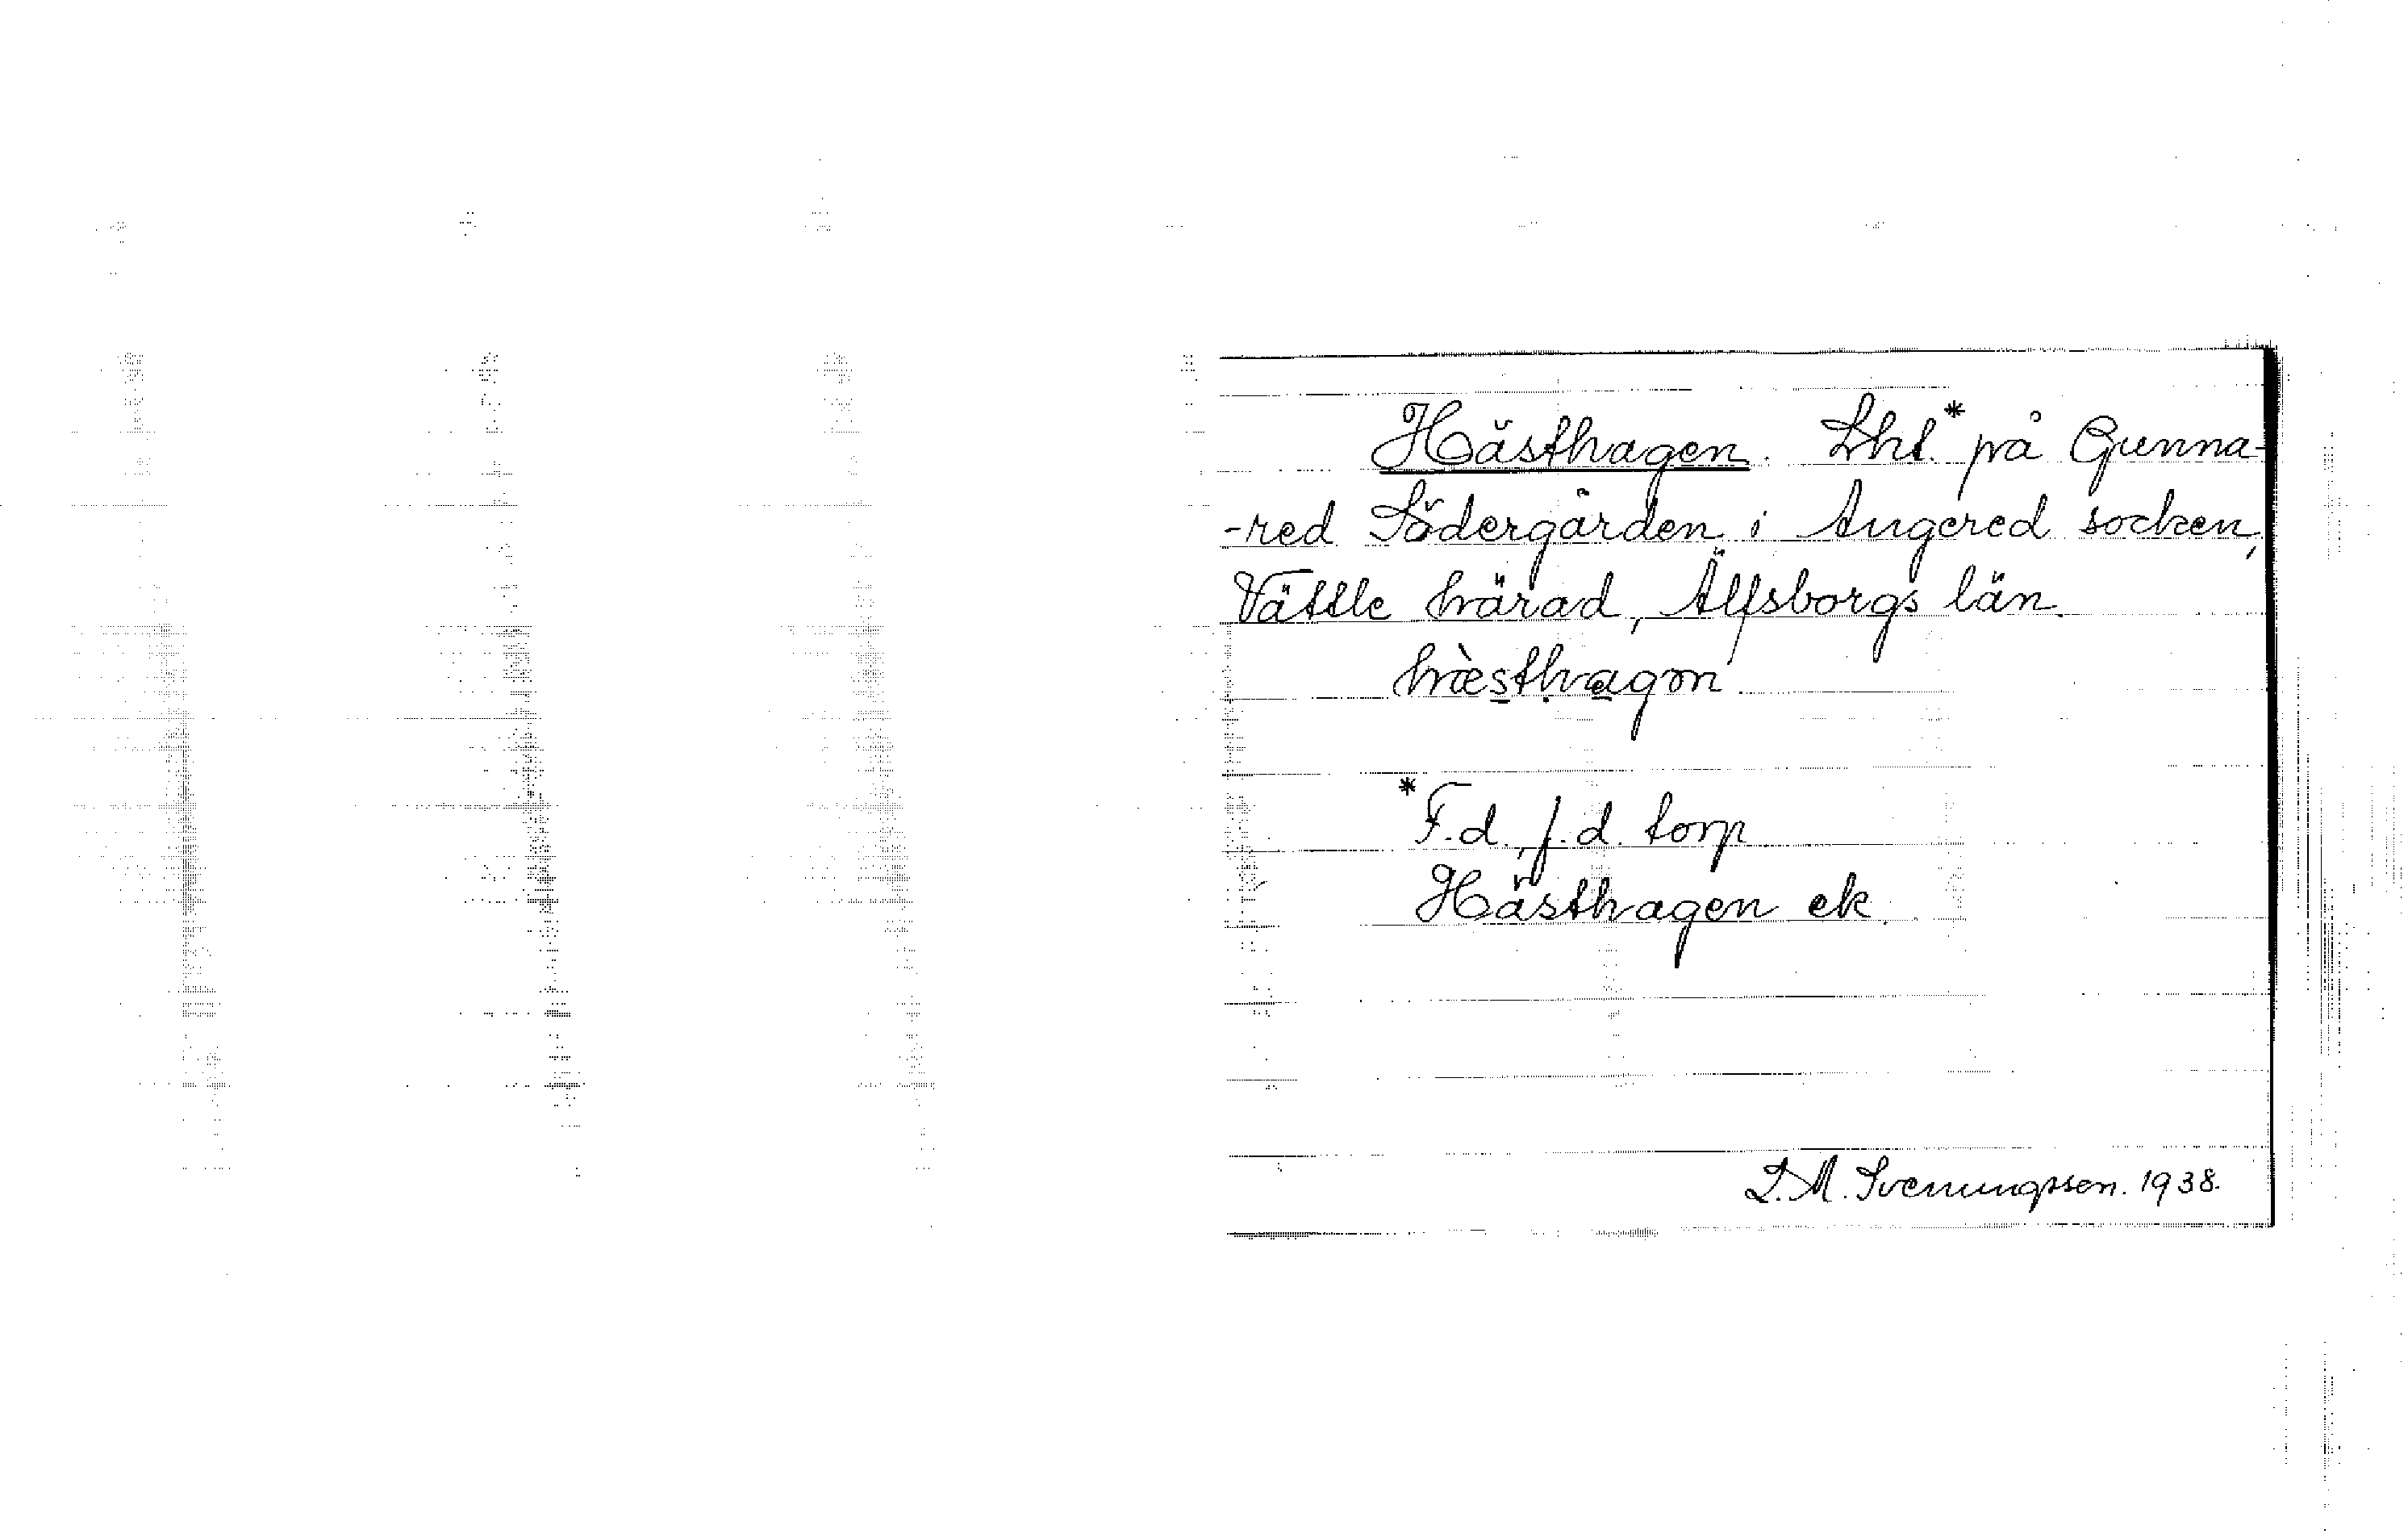 Hästhagen. Lht.* på Gunna-
-red Södergården i Angered socken,
Vättle härad, Älfsborgs län.
hæ̀sthagən
*F.d., j.d. torp
Hästhagen ek.
L.M. Svenungsson. 1938.